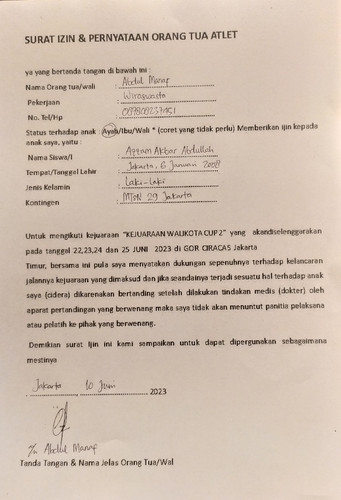 SURAT IZIN & PERNYATAAN ORANG TUA ATLET
ya yang bertanda tangan di bawah ini :
Nama Orang tua/wali : Abdul Manaf
Pekerjaan : Wiraswasta
No. Tel/Hp :
Status terhadap anak : Ayah/Ibu/Wali * (coret yang tidak perlu) Memberikan Ijin kepada
anak saya, yaitu :
Nama Siswa/I : Azzam Akbar Abdullah
Tempat/Tanggal Lahir : Jakarta, 6 Januari 2008
Jenis Kelamin : Laki-laki
Kontingen : MTsN 29 Jakarta
Untuk mengikuti kejuaraan "KEJUARAAN WALIKOTA CUP 2" yang akandiselenggarakan
pada tanggal 22,23,24 dan 25 JUNI 2023 di GOR CIRACAS Jakarta
Timur, bersama ini pula saya menyatakan dukungan sepenuhnya terhadap kelancaran
jalannya kejuaraan yang dimaksud dan jika seandainya terjadi sesuatu hal terhadap anak
saya (cidera) dikarenakan bertanding setelah dilakukan tindakan medis (dokter) oleh
aparat pertandingan yang berwenang maka saya tidak akan menuntut panitia pelaksana
atau pelatih ke pihak yang berwenang.
Demikian surat Ijin ini kami sampaikan untuk dapat dipergunakan sebagaimana
mestinya
Jakarta, 10 Juni 2023
Abdul Manaf
Tanda Tangan & Nama Jelas Orang Tua/Wal